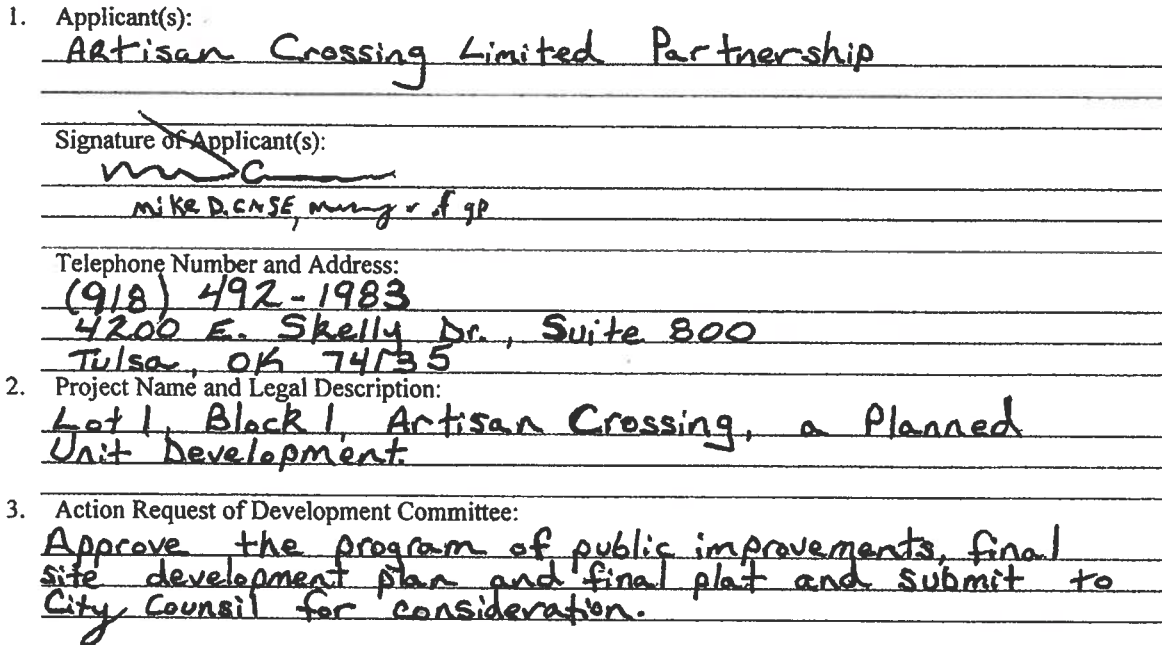 1. Applicant(s):
ARtisan Crossing Limited Partnership
Signature of Applicant(s):
Mike D. CASE, of gp
Telephone Number and Address:
(918) 492-1983
4200 E. Skelly Dr., Suite 800
Tulsa, OK 74135
2. Project Name and Legal Description:
Lot 1, Block 1, Artisan Crossing, a Planned
Unit Development.
3. Action Request of Development Committee:
Approve the program of public improvements, final
site development plan and final plat and submit to
City Counsil for consideration.